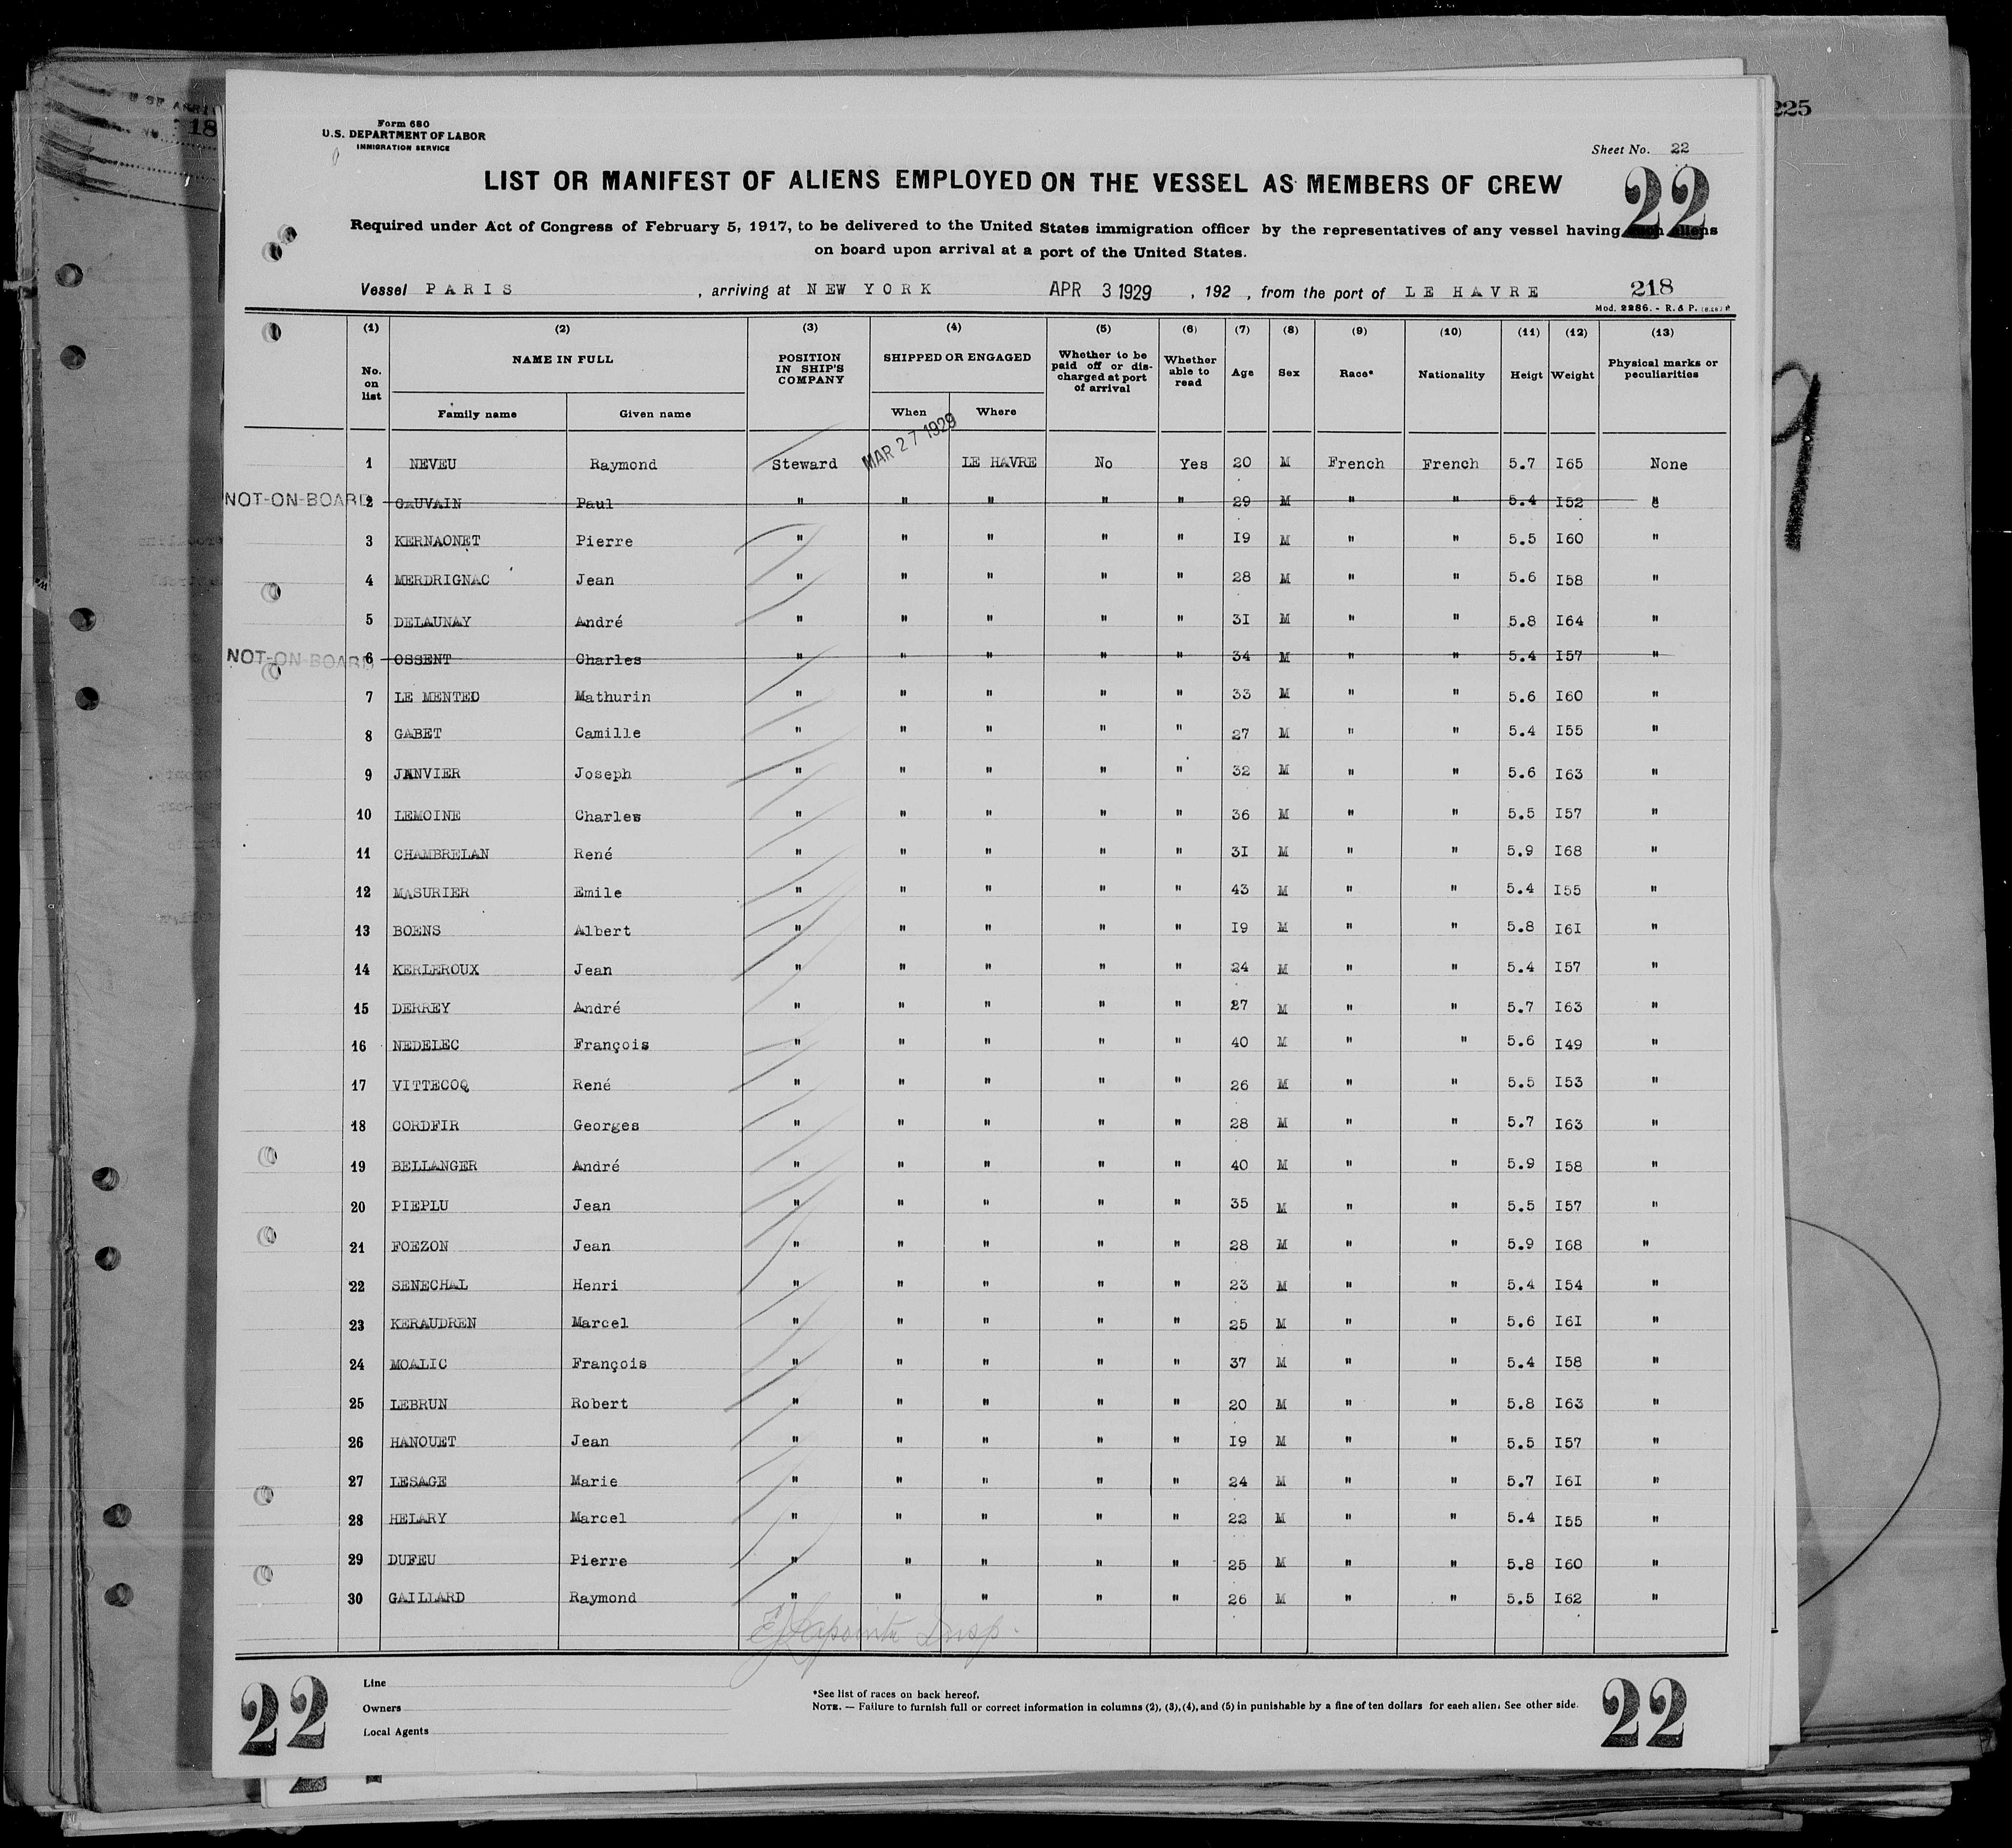 225
18
Form 680
U.S. DEPARTMENT OF LABOR
IMMIGRATION SERVICE
Sheet No. 22
22
LIST OR MANIFEST OF ALIENS EMPLOYED ON THE VESSEL AS MEMBERS OF CREW
Required under Act of Congress of February 5, 1917, to be delivered to the United States immigration officer by the representatives of any vessel having such aliens
on board upon arrival at a port of the United States.
Vessel PARIS , arriving at NEW YORK APR 3 1929 , 192 , from the port of LE HAVRE
218
Mod. 2286. - R. & P.
(1) (2) (3) (4) (5) (6) (7) (8) (9) (10) (11) (12) (13)
No. on list NAME IN FULL Family name Given name POSITION IN SHIP'S COMPANY SHIPPED OR ENGAGED When Where Whether to be paid off or discharged at port of arrival Whether able to read Age Sex Race* Nationality Heigt Weight Physical marks or peculiarities
1 NEVEU Raymond Steward MAR 27 1929 LE HAVRE No Yes 20 M French French 5.7 I65 None
NOT-ON-BOARD 2 GAUVAIN Paul " " " " " 29 M " " 5.4 I52 "
3 KERNAONET Pierre " " " " " I9 M " " 5.5 I60 "
4 MERDRIGNAC Jean " " " " " 28 M " " 5.6 I58 "
5 DELAUNAY André " " " " " 3I M " " 5.8 I64 "
NOT-ON-BOARD 6 OSSENT Charles " " " " " 34 M " " 5.4 I57 "
7 LE MENTED Mathurin " " " " " 33 M " " 5.6 I60 "
8 GABET Camille " " " " " 27 M " " 5.4 I55 "
9 JANVIER Joseph " " " " " 32 M " " 5.6 I63 "
10 LEMOINE Charles " " " " " 36 M " " 5.5 I57 "
11 CHAMBRELAN René " " " " " 3I M " " 5.9 I68 "
12 MASURIER Emile " " " " " 43 M " " 5.4 I55 "
13 BOENS Albert " " " " " I9 M " " 5.8 I6I "
14 KERLEROUX Jean " " " " " 24 M " " 5.4 I57 "
15 DERREY André " " " " " 27 M " " 5.7 I63 "
16 NEDELEC François " " " " " 40 M " " 5.6 I49 "
17 VITTECOQ René " " " " " 26 M " " 5.5 I53 "
18 CORDFIR Georges " " " " " 28 M " " 5.7 I63 "
19 BELLANGER André " " " " " 40 M " " 5.9 I58 "
20 PIEPLU Jean " " " " " 35 M " " 5.5 I57 "
21 FOEZON Jean " " " " " 28 M " " 5.9 I68 "
22 SENECHAL Henri " " " " " 23 M " " 5.4 I54 "
23 KERAUDREN Marcel " " " " " 25 M " " 5.6 I6I "
24 MOALIC François " " " " " 37 M " " 5.4 I58 "
25 LEBRUN Robert " " " " " 20 M " " 5.8 I63 "
26 HANOUET Jean " " " " " I9 M " " 5.5 I57 "
27 LESAGE Marie " " " " " 24 M " " 5.7 I6I "
28 HELARY Marcel " " " " " 22 M " " 5.4 I55 "
29 DUFEU Pierre " " " " " 25 M " " 5.8 I60 "
30 GAILLARD Raymond " " " " " 26 M " " 5.5 I62 "
Lapointe Insp.
Line
Owners
Local Agents
*See list of races on back hereof.
NOTE. — Failure to furnish full or correct information in columns (2), (3), (4), and (5) in punishable by a fine of ten dollars for each alien. See other side.
22
22